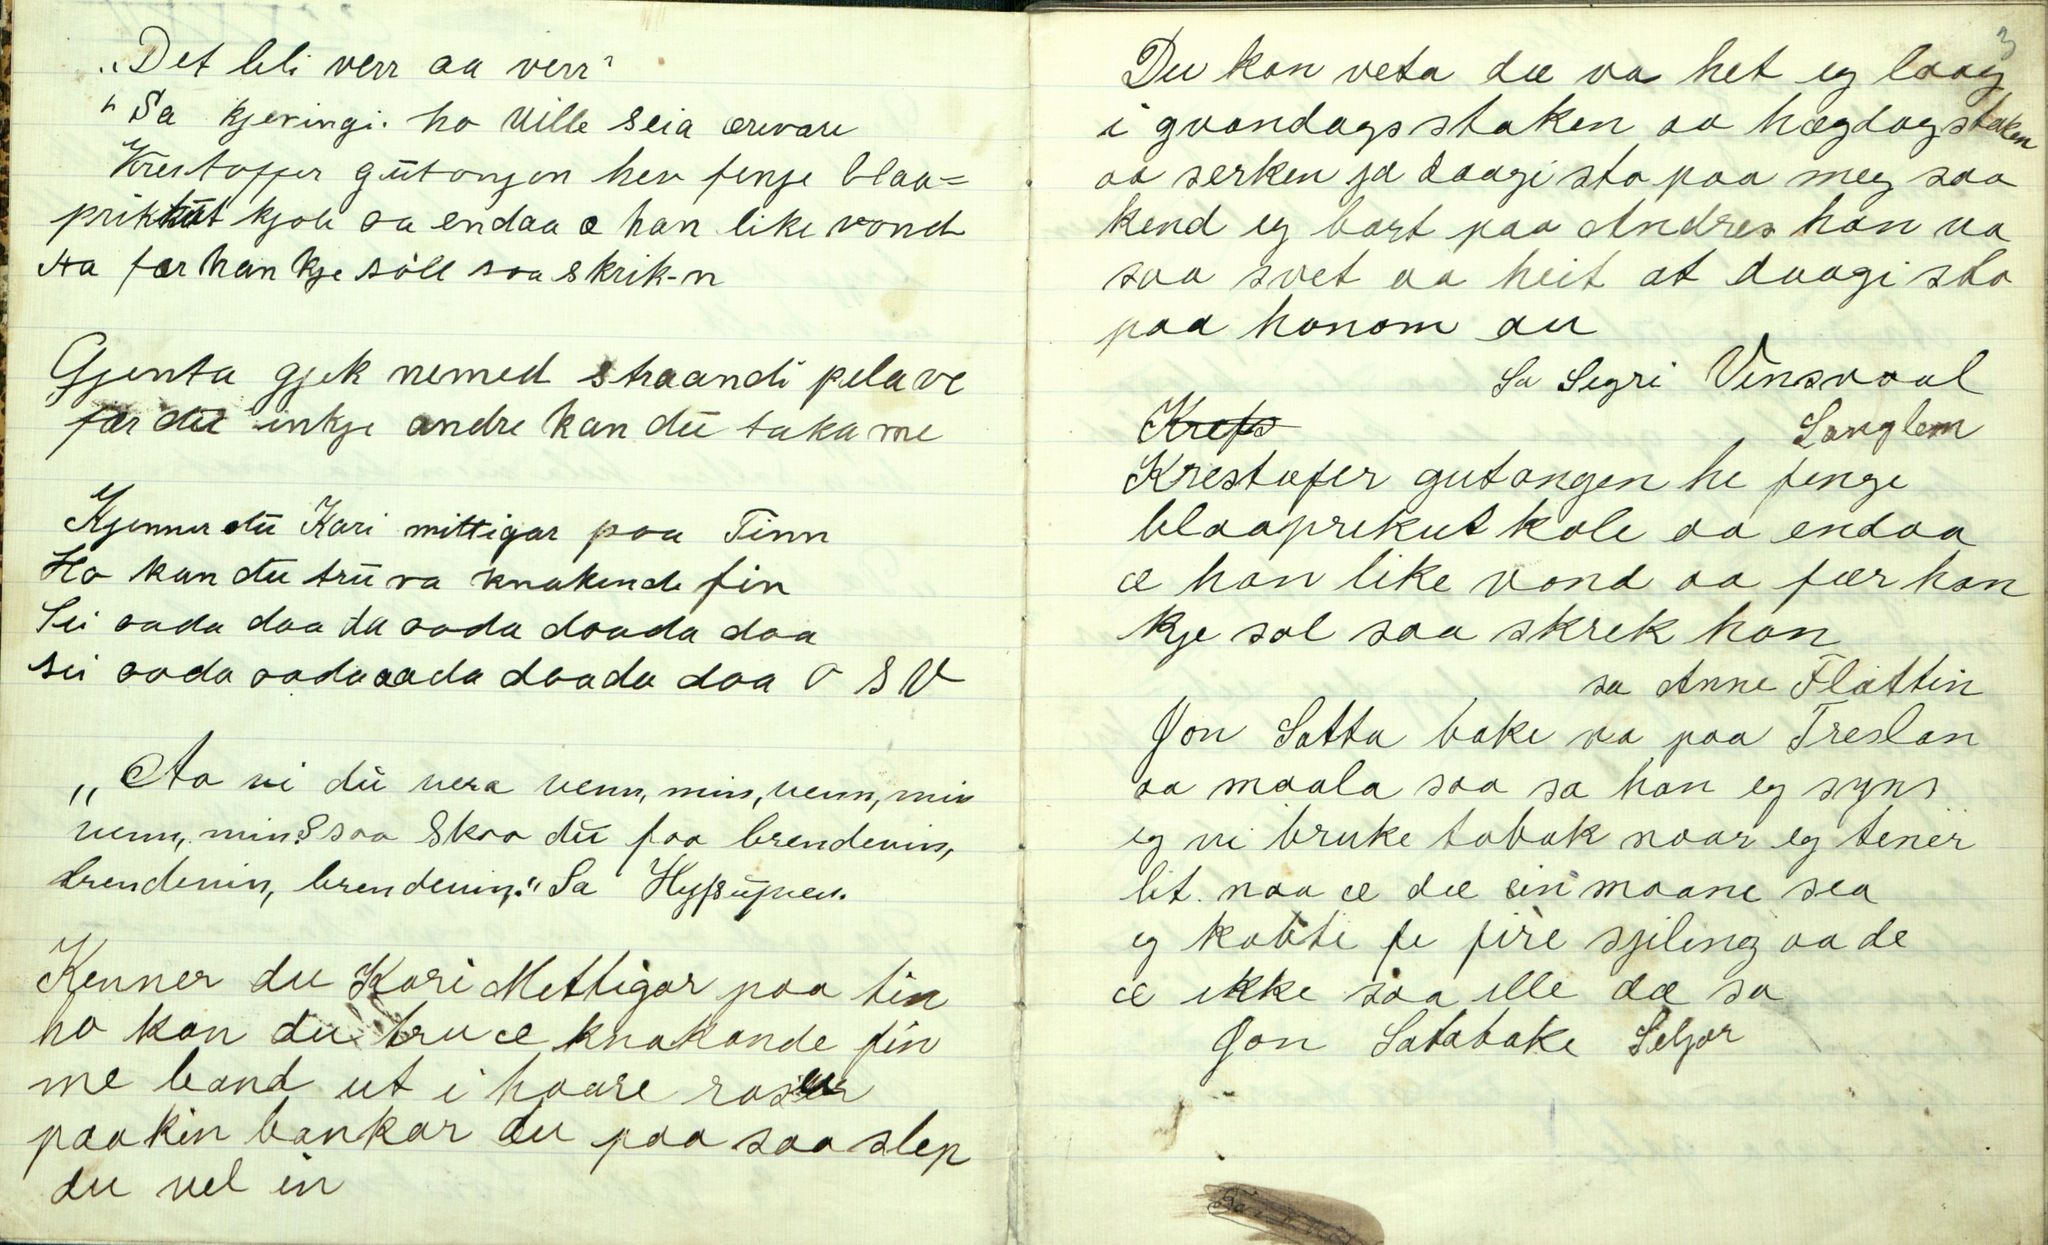 „Det bli verr aa verr"
"Sa kjeringi. ho ville seia ærevare
Krestoffer gütongen hev fenge blaa=
prikküt kjole aa endaa æ han like vond
Aa fær han kje söll saa skrik-n
Gjenta gjek nemed straandi pela ve
fær dü inkje andre kan dü taka me
Kjenner dü Kari mittigar paa Tinn
Ho kan dü trü va knakende fin
Sei aada daa da aada daada daa
sei aada aada aada daada daa O S V
„Aa vi dü vera venn, min, venn, min
venn, min? saa skaa dü faa brendevin,
brendevin, brendevin," Sa
Kenner du Kari Mettigar paa tin
ho kan du tru æ knakande fin
me band ut i haare roser
paa kin bankar du paa saa slep
du vel in
3
Du kan veta dæ va het eg laag
i gvondagsstaken aa hægdagstaken
aa serken ja daagi sto paa meg saa
kend eg bort paa Andres han va
saa svet aa heit at daagi sto
paa honom au
Sa Segri Vinsvaal
Langlem
Krefs
Krestofer gutongen he fenge
blaaprekut kole aa endaa
æ han like vond aa fær han
kje sol saa skrek han
sa Anne Flattin
Jon Satta bake va paa Treslan
aa maala saa sa han eg syns
eg vi bruke tobak naar eg tener
bit. naa æ dæ ein maane sea
eg kobte fe fire sjiling aa de
æ ikke saa ille dæ sa
Jon Satabake Seljor